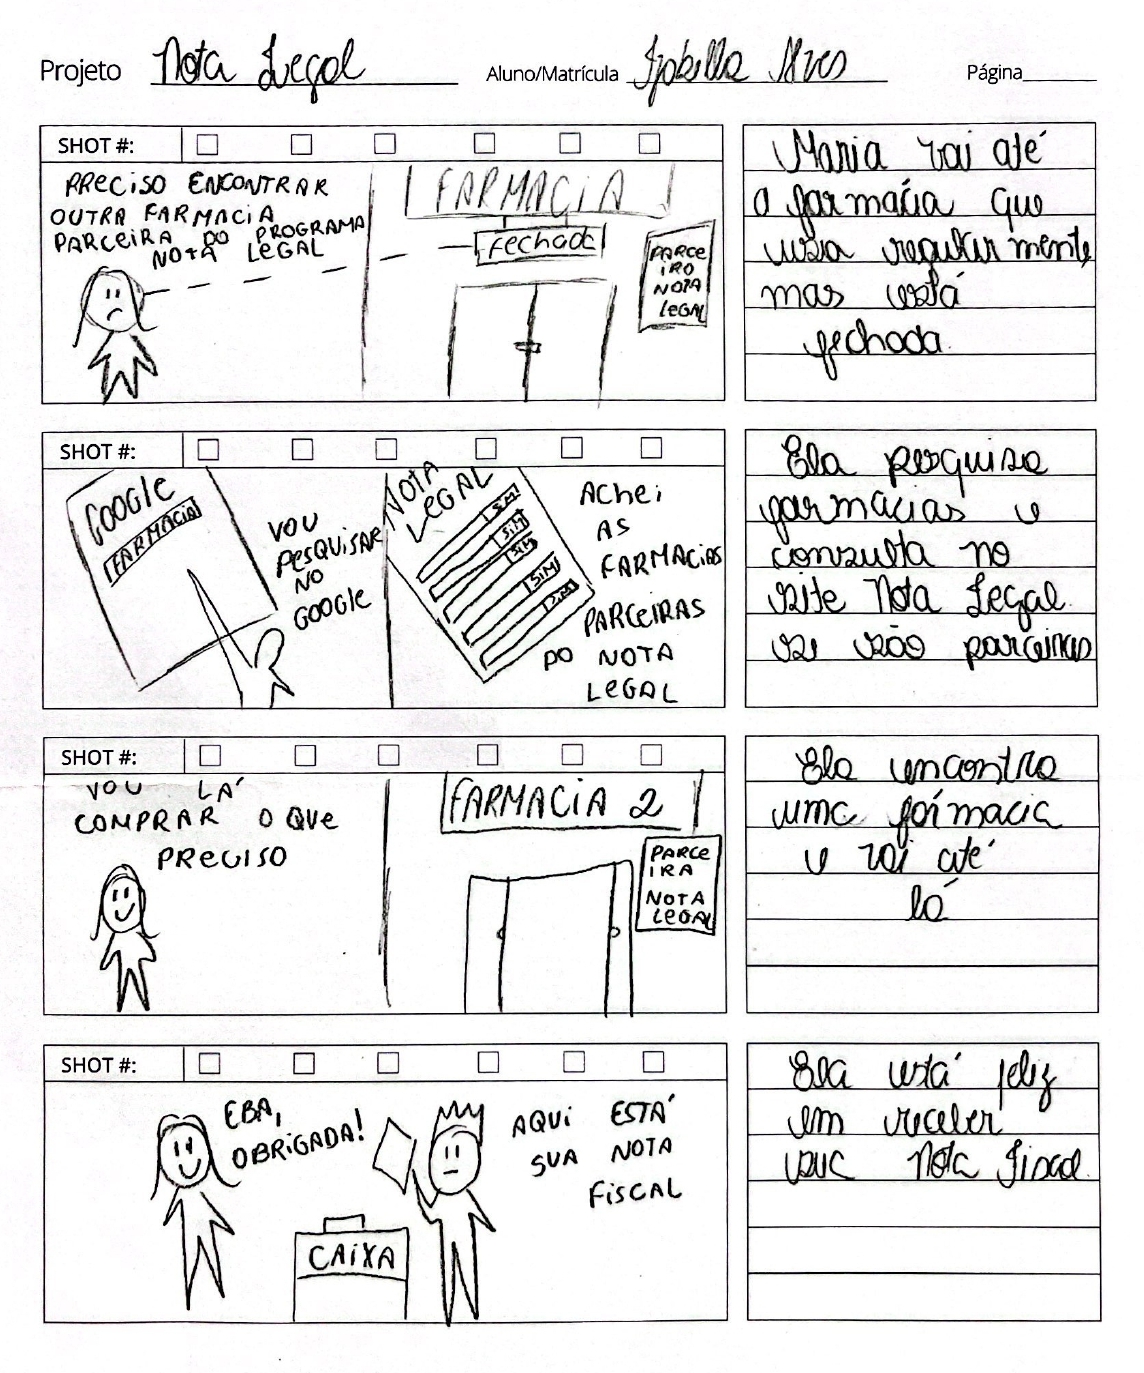 Projeto Nota Legal Aluno/Matrícula Izabella Alves Página
SHOT #:
PRECISO ENCONTRAR
OUTRA FARMACIA
PARCEIRA DO PROGRAMA
NOTA LEGAL
FARMACIA
fechada
PARCE
IRO
NOTA
LEGAL
Maria vai até
a farmácia que
usa regularmente,
mas está
fechada.
SHOT #:
GOOGLE
FARMACIA
VOU
PESQUISAR
NO
GOOGLE
NOTA
LEGAL
SIM
SIM
SIM
SIM
SIM
ACHEI
AS
FARMACIAS
PARCEIRAS
DO NOTA
LEGAL
Ela pesquisa
farmacias e
consulta no
site Nota Legal
se são parceiras
SHOT #:
VOU LÁ
COMPRAR O QUE
PRECISO
FARMACIA 2
PARCE
IRA
NOTA
LEGAL
Ela encontra
uma fármacia
e vai até
lá
SHOT #:
EBA,
OBRIGADA!
CAIXA
AQUI ESTÁ
SUA NOTA
FISCAL
Ela está feliz
em receber
sua Nota Fiscal.